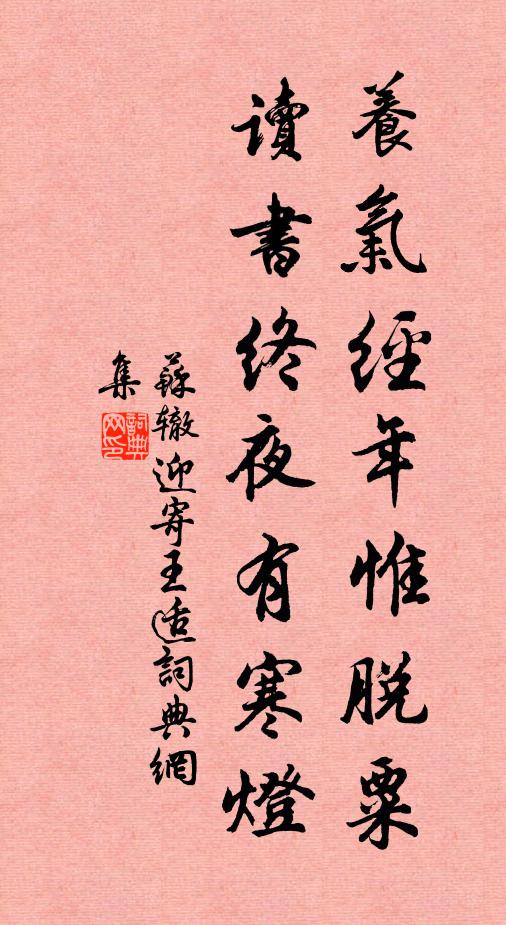 養氣經年惟脱粟
讀書終夜有寒燈
蘇辙迎寄王适詞典網
集
詞典网印